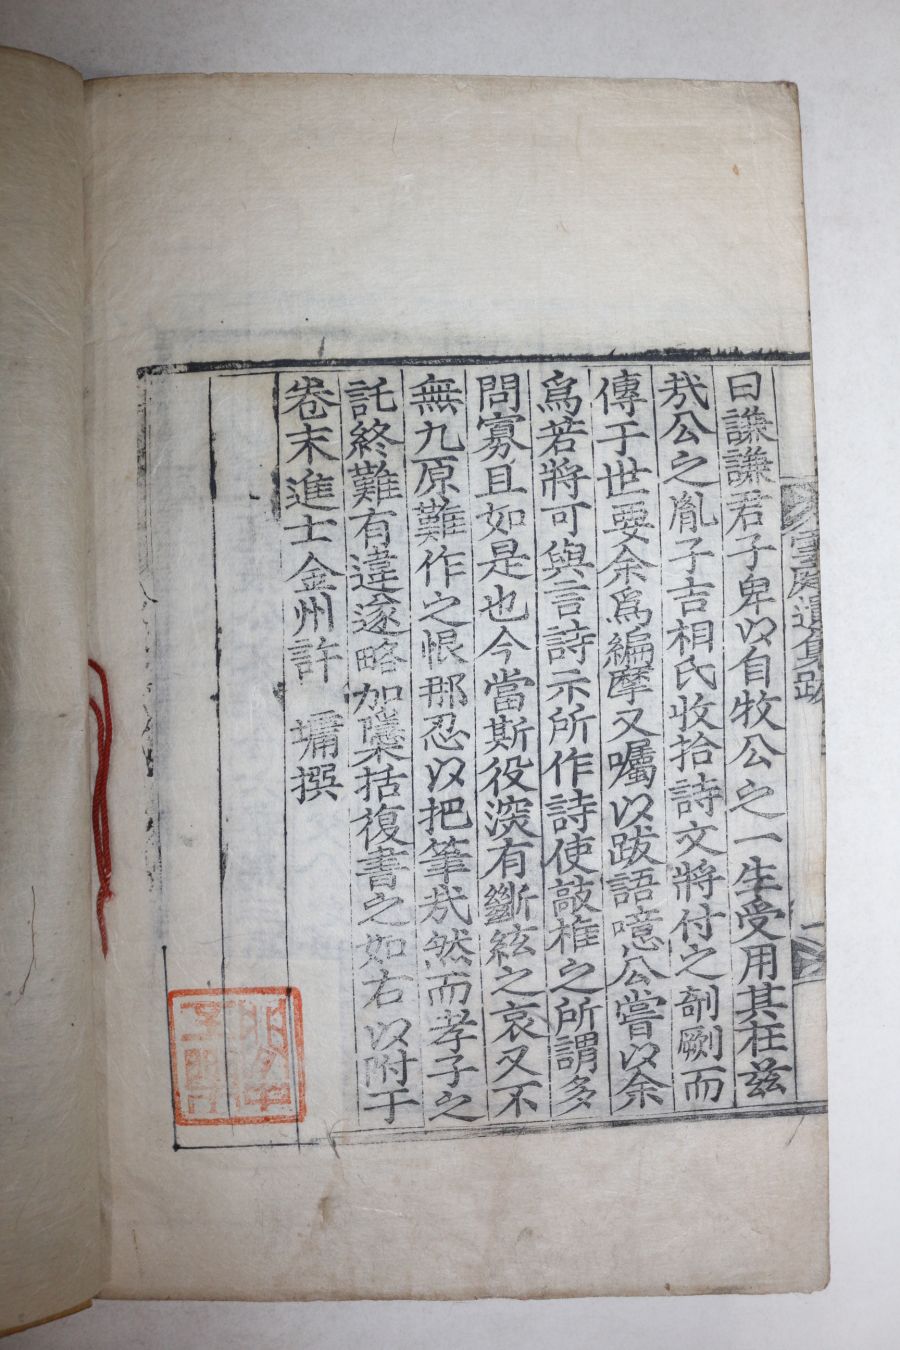 曰謙謙君子卑以自牧公之一生受用其在茲
㢤公之胤子吉相氏收拾詩文將付之剞劂而
傳于世要余爲編摩又囑以跋語噫公嘗以余
爲若將可與言詩示所作詩使敲推之所謂多
問寡且如是也今當斯役深有斷絃之哀又不
無九原難作之恨那忍以把筆㢤然而孝子之
託終難有違遂略加檃括復書之如右以附于
卷末進士金州許 墉撰
遺集跋